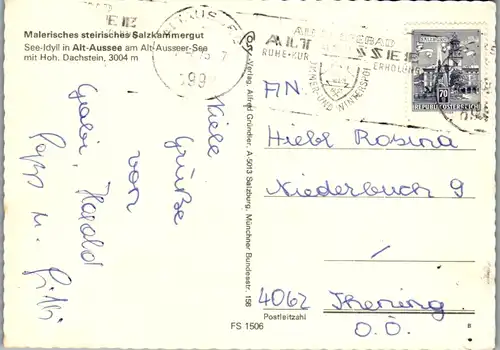 Malerisches steirisches Salzkammergut
See-Idyll in Alt-Aussee am Alt-Ausseer-See
mit Hoh. Dachstein, 3004 m
ALT AUSSEE
RUHE-KUR
ERHOLUNG
70
REPUBLIK ÖSTERREICH
Viele
Grüße
von
Gabi, Harald
Papa u.
Cosy-Verlag Alfred Gründler, A-5013 Salzburg, Münchner Bundesstr. 156
AN
Hiebl Rosina
Niederbuch 9
4062 Thening
Postleitzahl
O.Ö.
FS 1506
B